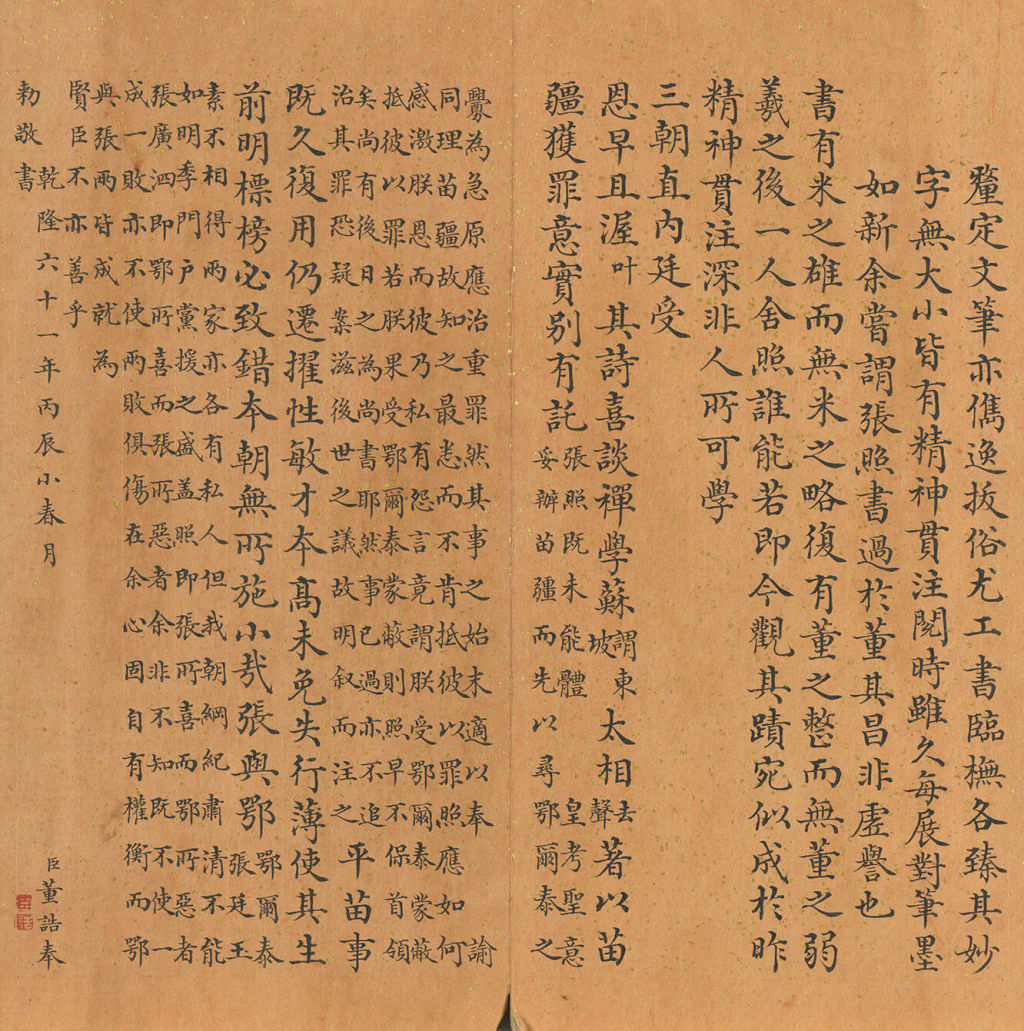 釐定文筆亦儁逸拔俗尤工書臨橅各臻其妙
字無大小皆有精神貫注閱時雖久每展對筆墨
如新余嘗謂張照書過於董其昌非虛譽也
書有米之雄而無米之略復有董之整而無董之弱
羲之後一人舍照誰能若即今觀其蹟宛似成於昨
精神貫注深非人所可學
三朝直內廷受
恩早且渥叶其詩喜談禪學蘇謂東坡太相去聲著以苗
疆獲罪意實別有託
張照既未能體皇考聖意
妥辦苗疆而先以尋鄂爾泰之
釁為急原應治重罪然其事之始末適以奉諭
同理苗疆故知之最悉而不肯抵彼以罪照應如何
感激朕恩而彼乃私有怨言竟謂朕受鄂爾泰蒙蔽
抵彼以罪若朕果受鄂爾泰蒙蔽則照早不保首領
矣尚有後日之為尚書耶然事已過亦不追
治其罪恐疑案滋後世之議故明叙而注之
平苗事
既久復用仍遷擢性敏才本高未免失行薄使其生
前明標榜必致錯本朝無所施小哉張與鄂
鄂爾泰
張廷玉
素不相得兩家亦各有私人但我朝綱紀肅清不能
如明季門戶黨援之盛盖照即張所喜而鄂所惡者
張廣泗即鄂所喜而張所惡者余非不知既不使一
成一敗亦不使兩敗俱傷在余心固自有權衡而鄂
與張兩皆成就為
賢臣不亦善乎
乾隆六十一年丙辰小春月 臣董誥奉
勅敬書